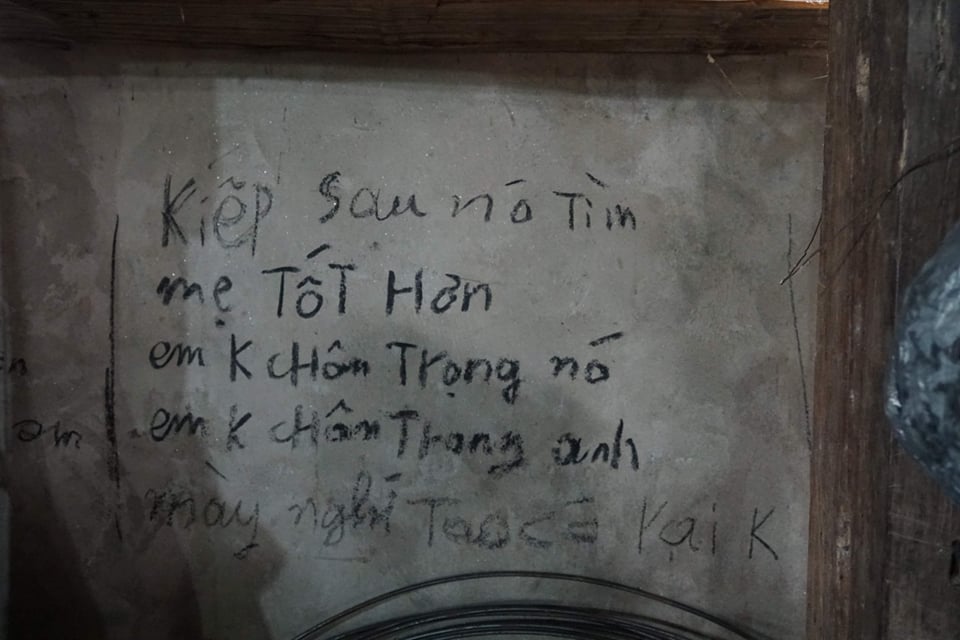 Kiếp Sau nó Tìm
mẹ TốT Hơn
em K cHân Trọng nó
em K cHân Trọng anh
mày nghĩ Tao có Vại K